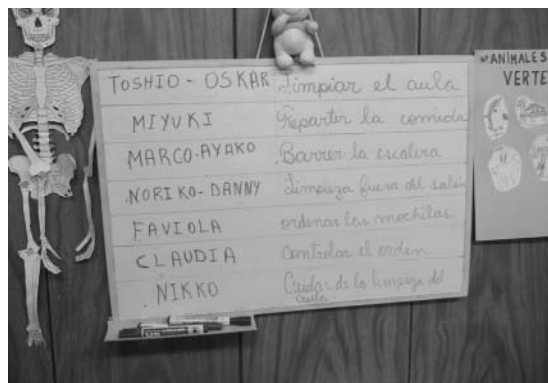 TOSHIO - OSKAR Limpiar el aula
MIYUKI Repartir la comida
MARCO-AYAKO Barrer la escalera
NORIKO-DANNY Limpieza fuera del salón
FAVIOLA ordenar las mochilas
CLAUDIA Controlar el orden
NIKKO Cuidar de la limpieza del
aula.
ANIMALES
VERTE